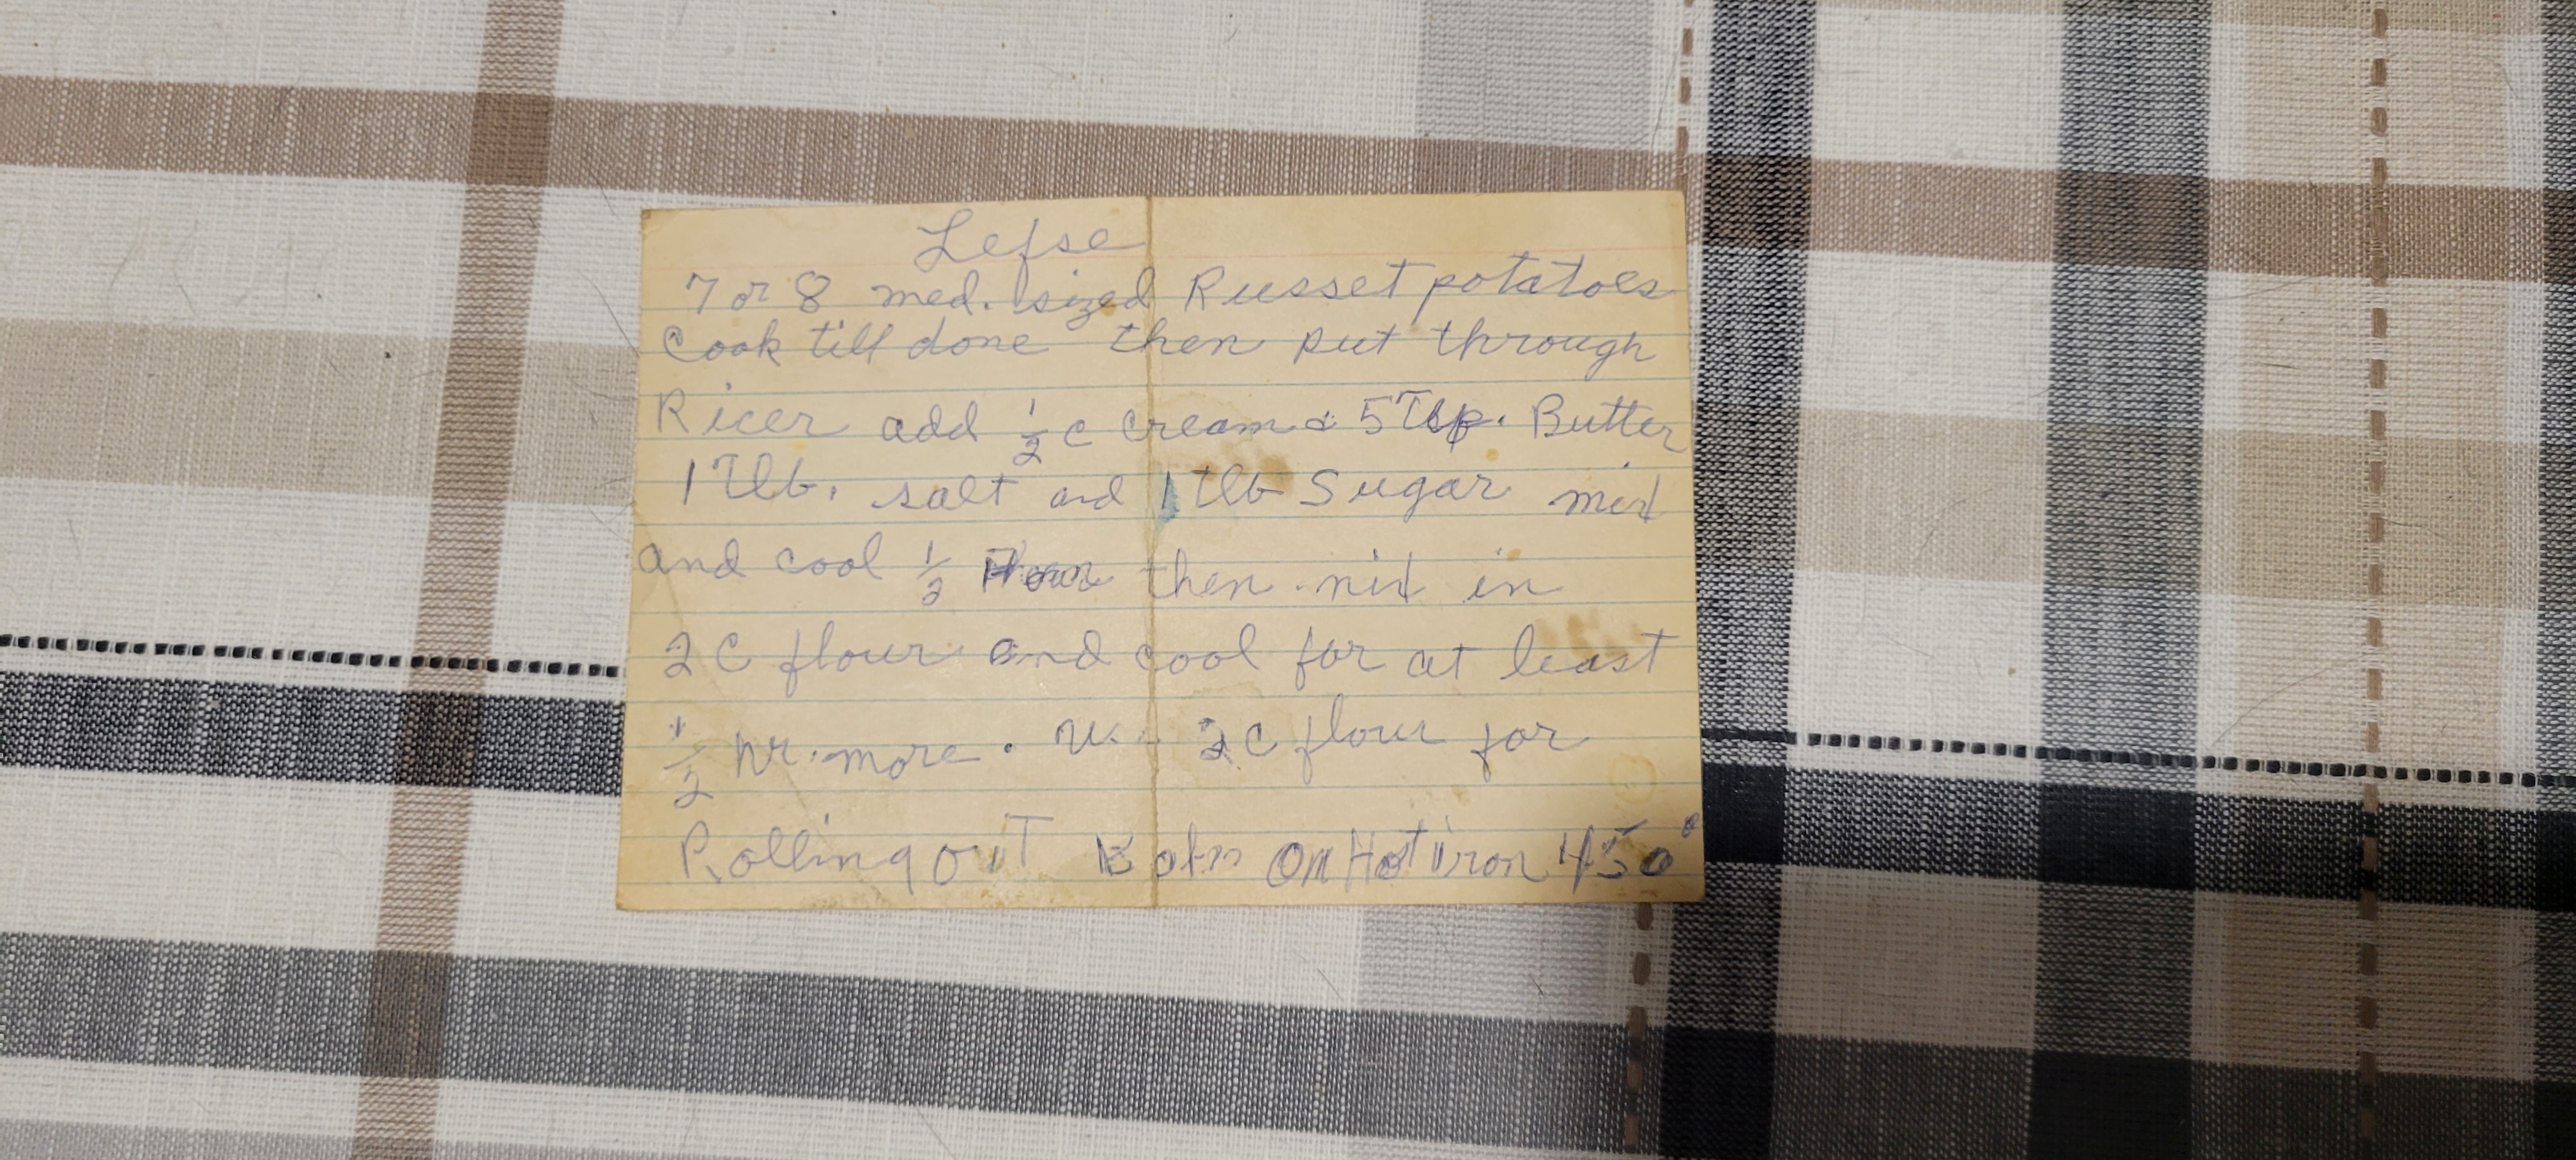 Lefse
7 or 8 med. sized Russet potatoes
Cook till done then put through
Ricer add 1/2 c cream & 5 Tbp. Butter
1 Tlb. salt and 1 tlb Sugar mix
and cool 1/2 Hour then mix in
2 C flour and cool for at least
1/2 hr. more. 2 C flour for
Rolling out on Hot iron 450°